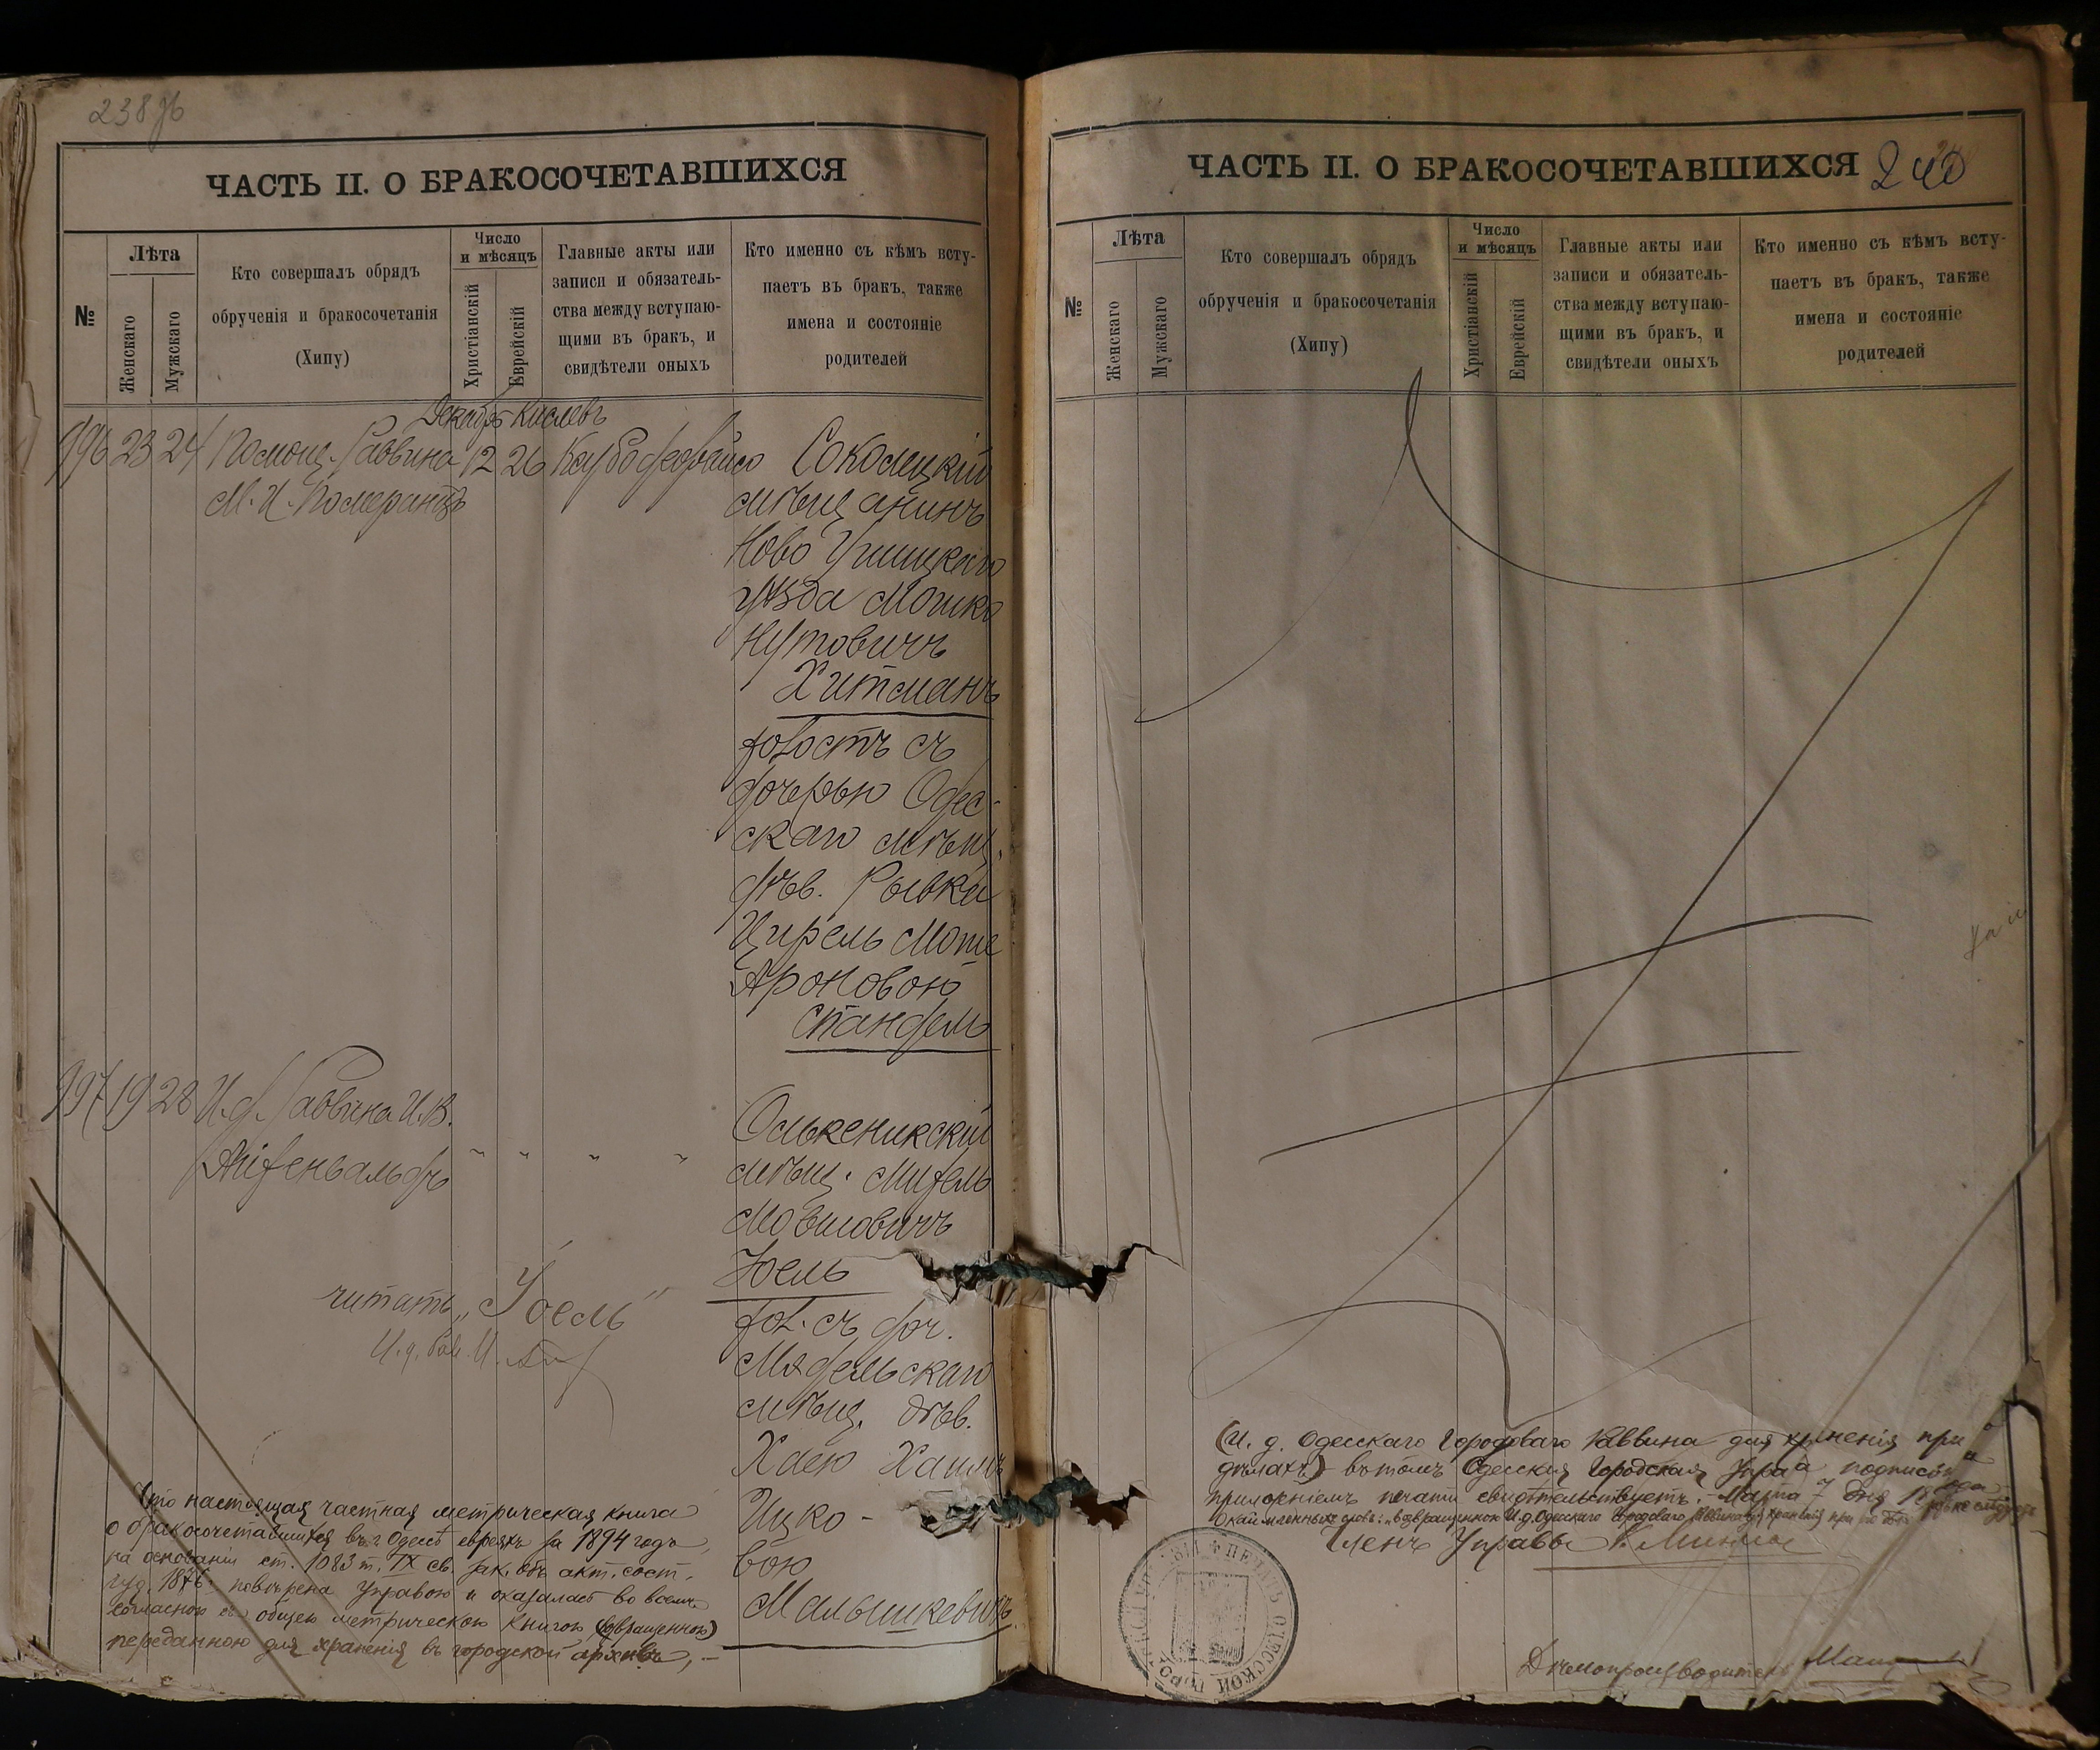 238 об
ЧАСТЬ II. О БРАКОСОЧЕТАВШИХСЯ
№
Лѣта
Женскаго
Мужскаго
Кто совершалъ обрядъ
обрученія и бракосочетанія
(Хипу)
Число
и мѣсяцъ
Христіанскій
Еврейскій
Главные акты или
записи и обязатель-
ства между вступаю-
щими въ бракъ, и
свидѣтели оныхъ
Кто именно съ кѣмъ всту-
паетъ въ бракъ, также
имена и состояніе
родителей
Декабрь Кислевъ
996 23 24 Помощ. Раввина 12 26
М. И. Померанцъ
Соколецкій
мѣщанинъ
Ново Ушицкаго
уѣзда Мошко
Нутовичъ
Хитманъ
холостъ съ
дочерью Одес-
скаго мѣщ.
дѣв. Рывка
Цирель Моте
Ароновою
Стандель
997 19 28 И. д. Раввина И. В.
Айзенвальдъ
" " " "
Олькеникский
мѣщ.
Мовшовичъ
Юель
хол. съ доч.
Мядельскаго
мѣщ. дѣв.
Хаею Хаимъ
Ицко-
вою
Малышкевичъ
читать „Іоель"
И. д. Рав.
Что настоящая частная метрическая книга
о бракосочетавшихся въ г. Одессѣ евреяхъ за 1894 годъ,
на основаніи ст. 1083 т. IX св. зак. объ акт. сост.
изд. 1876 повѣрена Управою и оказалась во всемъ
согласною съ общею метрическою книгою, (возвращенною)
переданною для храненія въ городской архивъ, —
ЧАСТЬ II. О БРАКОСОЧЕТАВШИХСЯ
240
№
Лѣта
Женскаго
Мужскаго
Кто совершалъ обрядъ
обрученія и бракосочетанія
(Хипу)
Число
и мѣсяцъ
Христіанскій
Еврейскій
Главные акты или
записи и обязатель-
ства между вступаю-
щими въ бракъ, и
свидѣтели оныхъ
Кто именно съ кѣмъ всту-
паетъ въ бракъ, также
имена и состояніе
родителей
(И. д. Одесскаго Городоваго Раввина для храненія при
дѣлахъ) въ томъ Одесская Городская Управа подписью и
приложеніемъ печати свидѣтельствуетъ. Марта 7 дня
Членъ Управы
ПЕЧАТЬ ОДЕССКОЙ ГОР
Дѣлопроизводитель